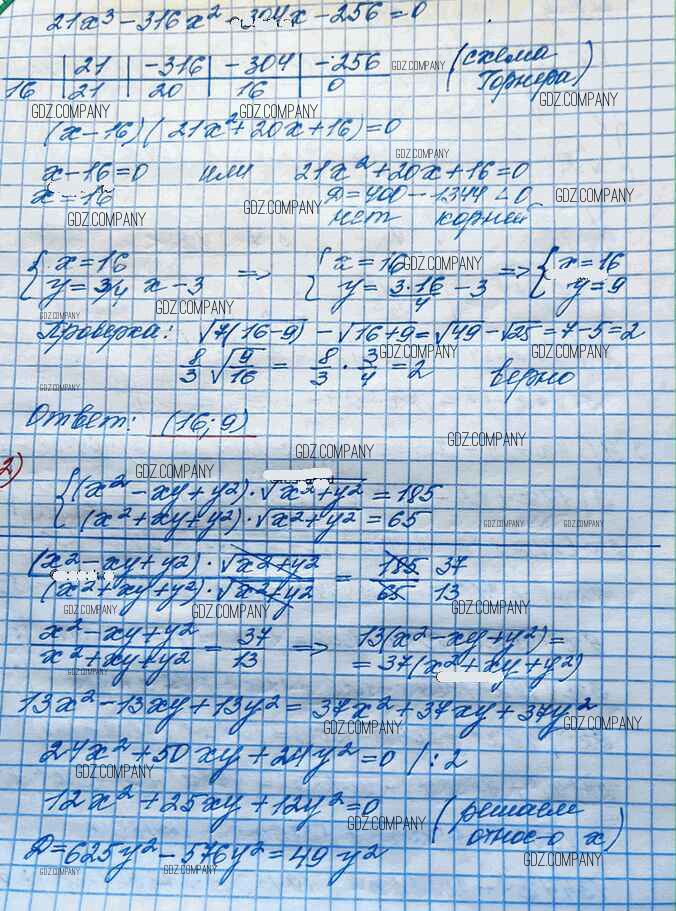 21x³ - 316x² - 304x - 256 = 0
| 21 | -316 | -304 | -256 (схема
16 | 21 | 20 | 16 | 0 Горнера)
(x - 16)(21x² + 20x + 16) = 0
x - 16 = 0 или 21x² + 20x + 16 = 0
x = 16 D = 400 - 1344 < 0
нет корней
{ x = 16 => { x = 16 => { x = 16
y = 3/4 x - 3 y = 3·16/4 - 3 y = 9
Проверка: √7(16-9) - √16+9 = √49 - √25 = 7 - 5 = 2
8/3 √9/16 = 8/3 · 3/4 = 2 верно
Ответ: (16; 9)
2)
{ (x² - xy + y²) · √x²+y² = 185
(x² + xy + y²) · √x²+y² = 65
(x² - xy + y²) · √x²+y² / (x² + xy + y²) · √x²+y² = 185 37 / 65 13
x² - xy + y² / x² + xy + y² = 37/13 => 13(x² - xy + y²) =
= 37(x² + xy + y²)
13x² - 13xy + 13y² = 37x² + 37xy + 37y²
24x² + 50xy + 24y² = 0 /:2
12x² + 25xy + 12y² = 0 (решаем
относ-о x)
D = 625y² - 576y² = 49y²
GDZ.COMPANY